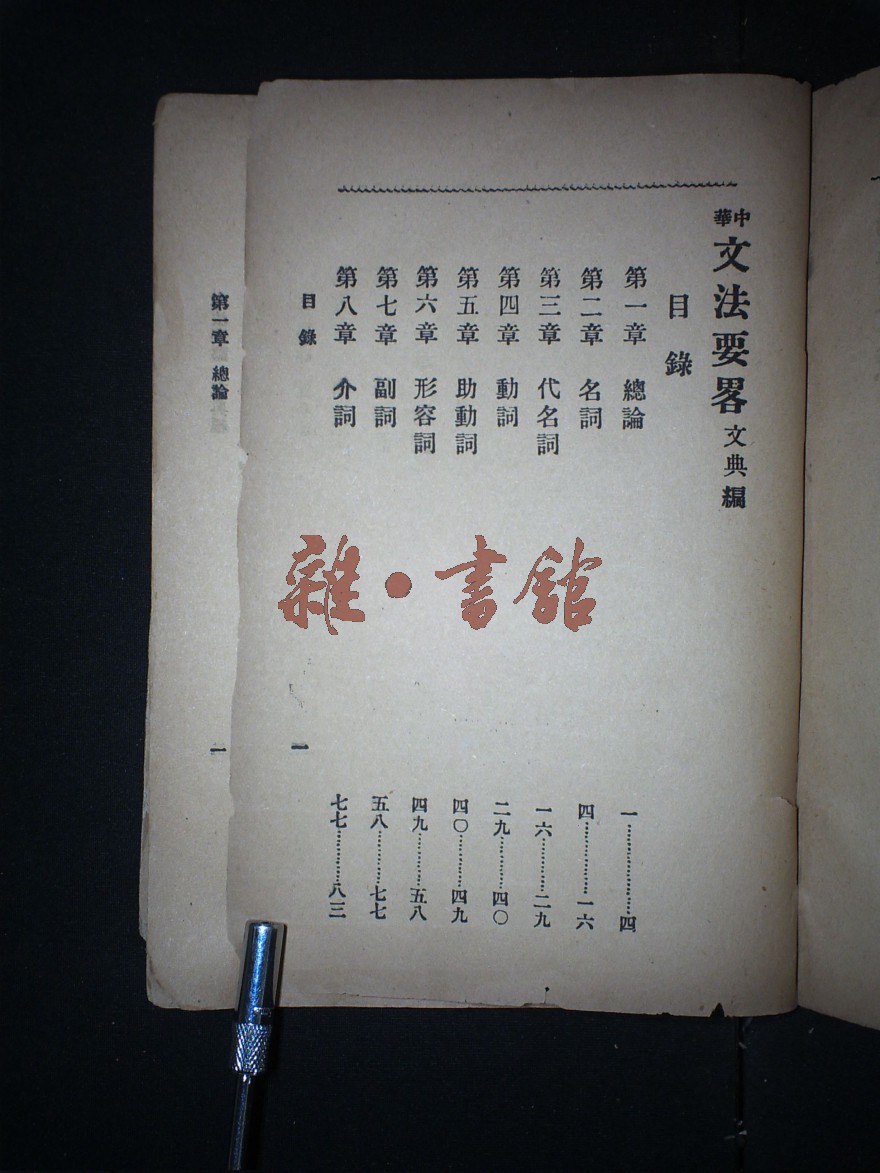 中華文法要畧文典編
目錄
第一章 總論 一………………四
第二章 名詞 四…………一六
第三章 代名詞 一六…………二九
第四章 動詞 二九…………四〇
第五章 助動詞 四〇…………四九
第六章 形容詞 四九…………五八
第七章 副詞 五八…………七七
第八章 介詞 七七…………八三
目錄 一
第一章 總論 一
雜·書館